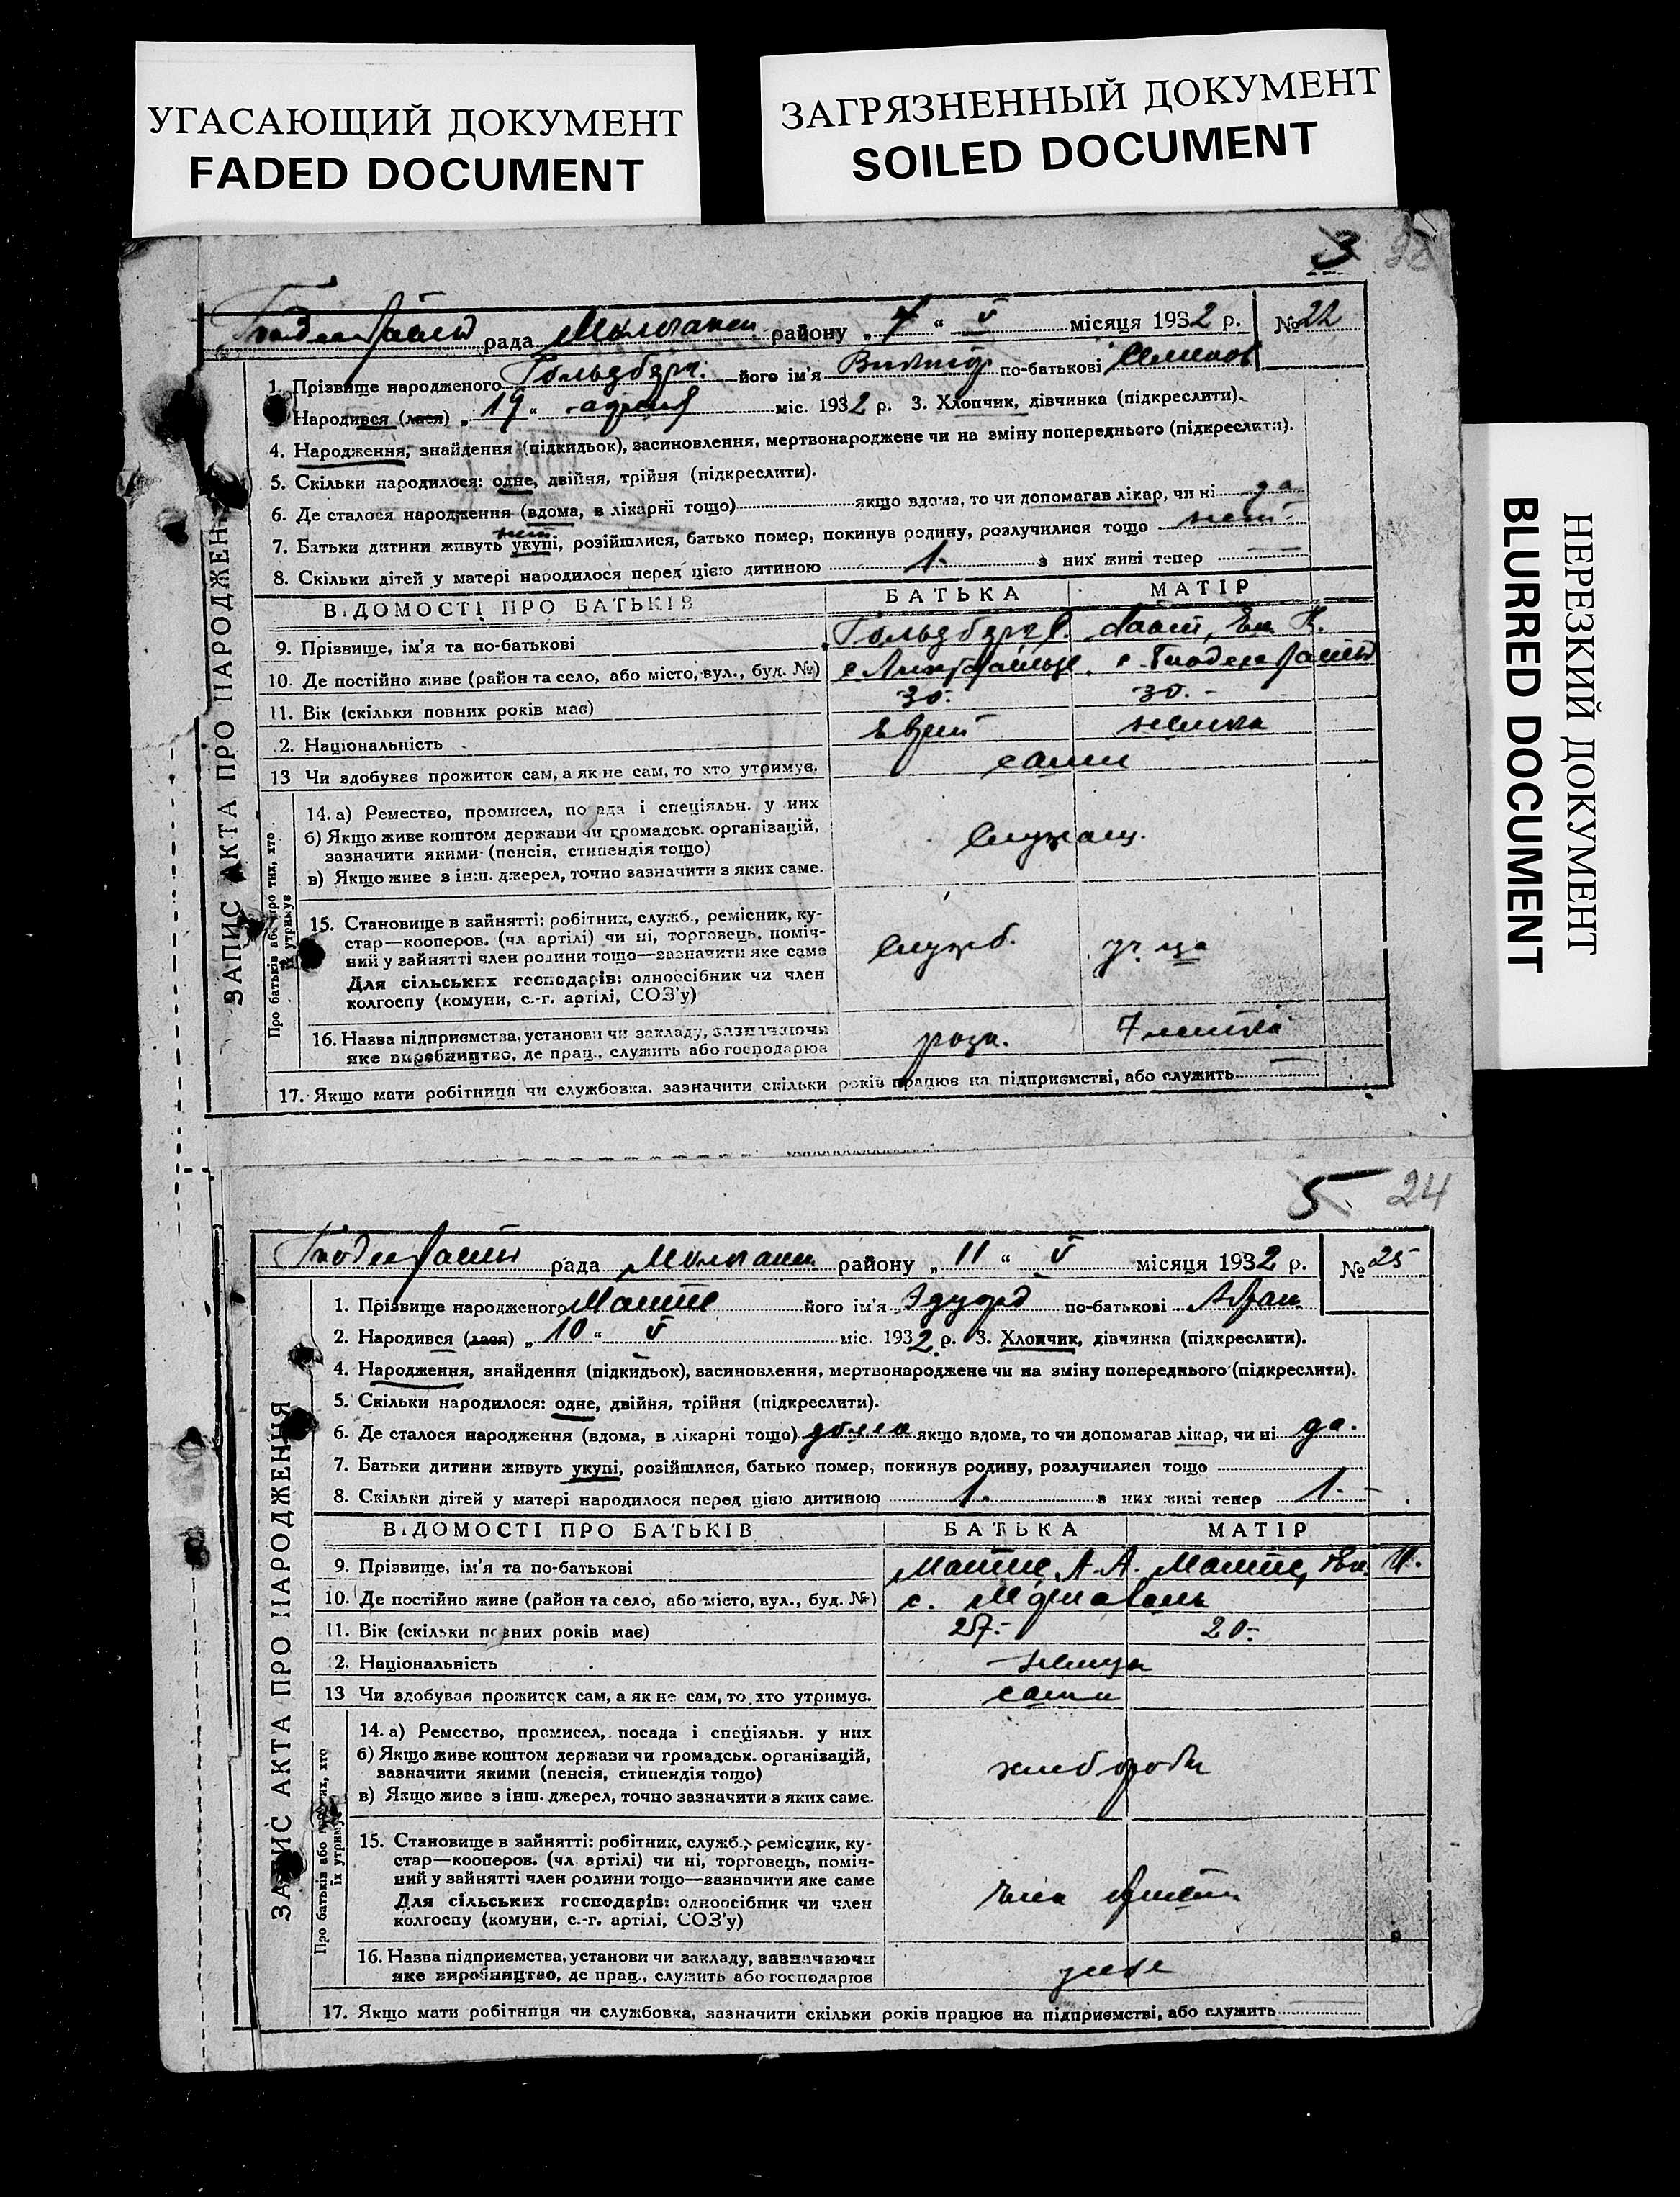 УГАСАЮЩИЙ ДОКУМЕНТ
FADED DOCUMENT
ЗАГРЯЗНЕННЫЙ ДОКУМЕНТ
SOILED DOCUMENT
НЕРЕЗКИЙ ДОКУМЕНТ
BLURRED DOCUMENT
3
рада району „ 7 “ V місяця 1932 р. № 22
1. Прізвище народженого Гольдберг. його ім'я Виктор по-батькові Семенов
Народився (лася) „ 19 “ апреля міс. 1932 р. 3. Хлопчик, дівчинка (підкреслити).
4. Народження, знайдення (підкидьок), засиновлення, мертвонароджене чи на зміну попереднього (підкреслити).
5. Скільки народилося: одне, двійня, трійня (підкреслити).
6. Де сталося народження (вдома, в лікарні тощо) якщо вдома, то чи допомагав лікар, чи ні да
7. Батьки дитини живуть нет укупі, розійшлися, батько помер, покинув родину, розлучилися тощо нет
8. Скільки дітей у матері народилося перед цією дитиною 1. з них живі тепер —
ВІДОМОСТІ ПРО БАТЬКІВ БАТЬКА МАТІР
9. Прізвище, ім'я та по-батькові Гольдберг С.
10. Де постійно живе (район та село, або місто, вул., буд. №)
11. Вік (скільки повних років має) 30. 30. -
2. Національність Еврей немка
13 Чи здобував прожиток сам, а як не сам, то хто утримує. сами
ЗАПИС АКТА ПРО НАРОДЖЕН
Про батьків або про тих, хто їх утримує
14. а) Ремество, промисел, посада і спеціяльн. у них
б) Якщо живе коштом держави чи громадськ. організацій,
зазначити якими (пенсія, стипендія тощо) Служащ.
в) Якщо живе з інш. джерел, точно зазначити з яких саме.
15. Становище в зайнятті: робітник, служб., ремісник, ку-
стар—кооперов. (чл. артілі) чи ні, торговець, поміч-
ний у зайнятті член родини тощо—зазначити яке саме Служб. уч-ца
Для сільських господарів: одноосібник чи член
колгоспу (комуни, с.-г. артілі, СОЗ'у)
16. Назва підприємства, установи чи закладу, зазначаючи
яке виробництво, де прац., служить або господарює
17. Якщо мати робітниця чи службовка, зазначити скільки років працює на підприємстві, або служить —
5 24
рада району „ 11 “ V місяця 1932 р. № 25
1. Прізвище народженого його ім'я Эдуард по-батькові
2. Народився (лася) „ 10 “ V міс. 1932 р. 3. Хлопчик, дівчинка (підкреслити).
4. Народження, знайдення (підкидьок), засиновлення, мертвонароджене чи на зміну попереднього (підкреслити).
5. Скільки народилося: одне, двійня, трійня (підкреслити).
6. Де сталося народження (вдома, в лікарні тощо) дома якщо вдома, то чи допомагав лікар, чи ні да.
7. Батьки дитини живуть укупі, розійшлися, батько помер, покинув родину, розлучилися тощо
8. Скільки дітей у матері народилося перед цією дитиною 1. з них живі тепер 1. -
ВІДОМОСТІ ПРО БАТЬКІВ БАТЬКА МАТІР
9. Прізвище, ім'я та по-батькові
10. Де постійно живе (район та село, або місто, вул., буд. №) с.
11. Вік (скільки повних років має) 27.- 20.-
2. Національність немцы
13 Чи здобував прожиток сам, а як не сам, то хто утримує. сами
ЗАПИС АКТА ПРО НАРОДЖЕННЯ
Про батьків або про тих, хто їх утримує
14. а) Ремество, промисел, посада і спеціяльн. у них
б) Якщо живе коштом держави чи громадськ. організацій,
зазначити якими (пенсія, стипендія тощо) хлеборобы
в) Якщо живе з інш. джерел, точно зазначити з яких саме.
15. Становище в зайнятті: робітник, служб., ремісник, ку-
стар—кооперов. (чл. артілі) чи ні, торговець, поміч-
ний у зайнятті член родини тощо—зазначити яке саме член артели
Для сільських господарів: одноосібник чи член
колгоспу (комуни, с.-г. артілі, СОЗ'у)
16. Назва підприємства, установи чи закладу, зазначаючи
яке виробництво, де прац., служить або господарює
17. Якщо мати робітниця чи службовка, зазначити скільки років працює на підприємстві, або служить